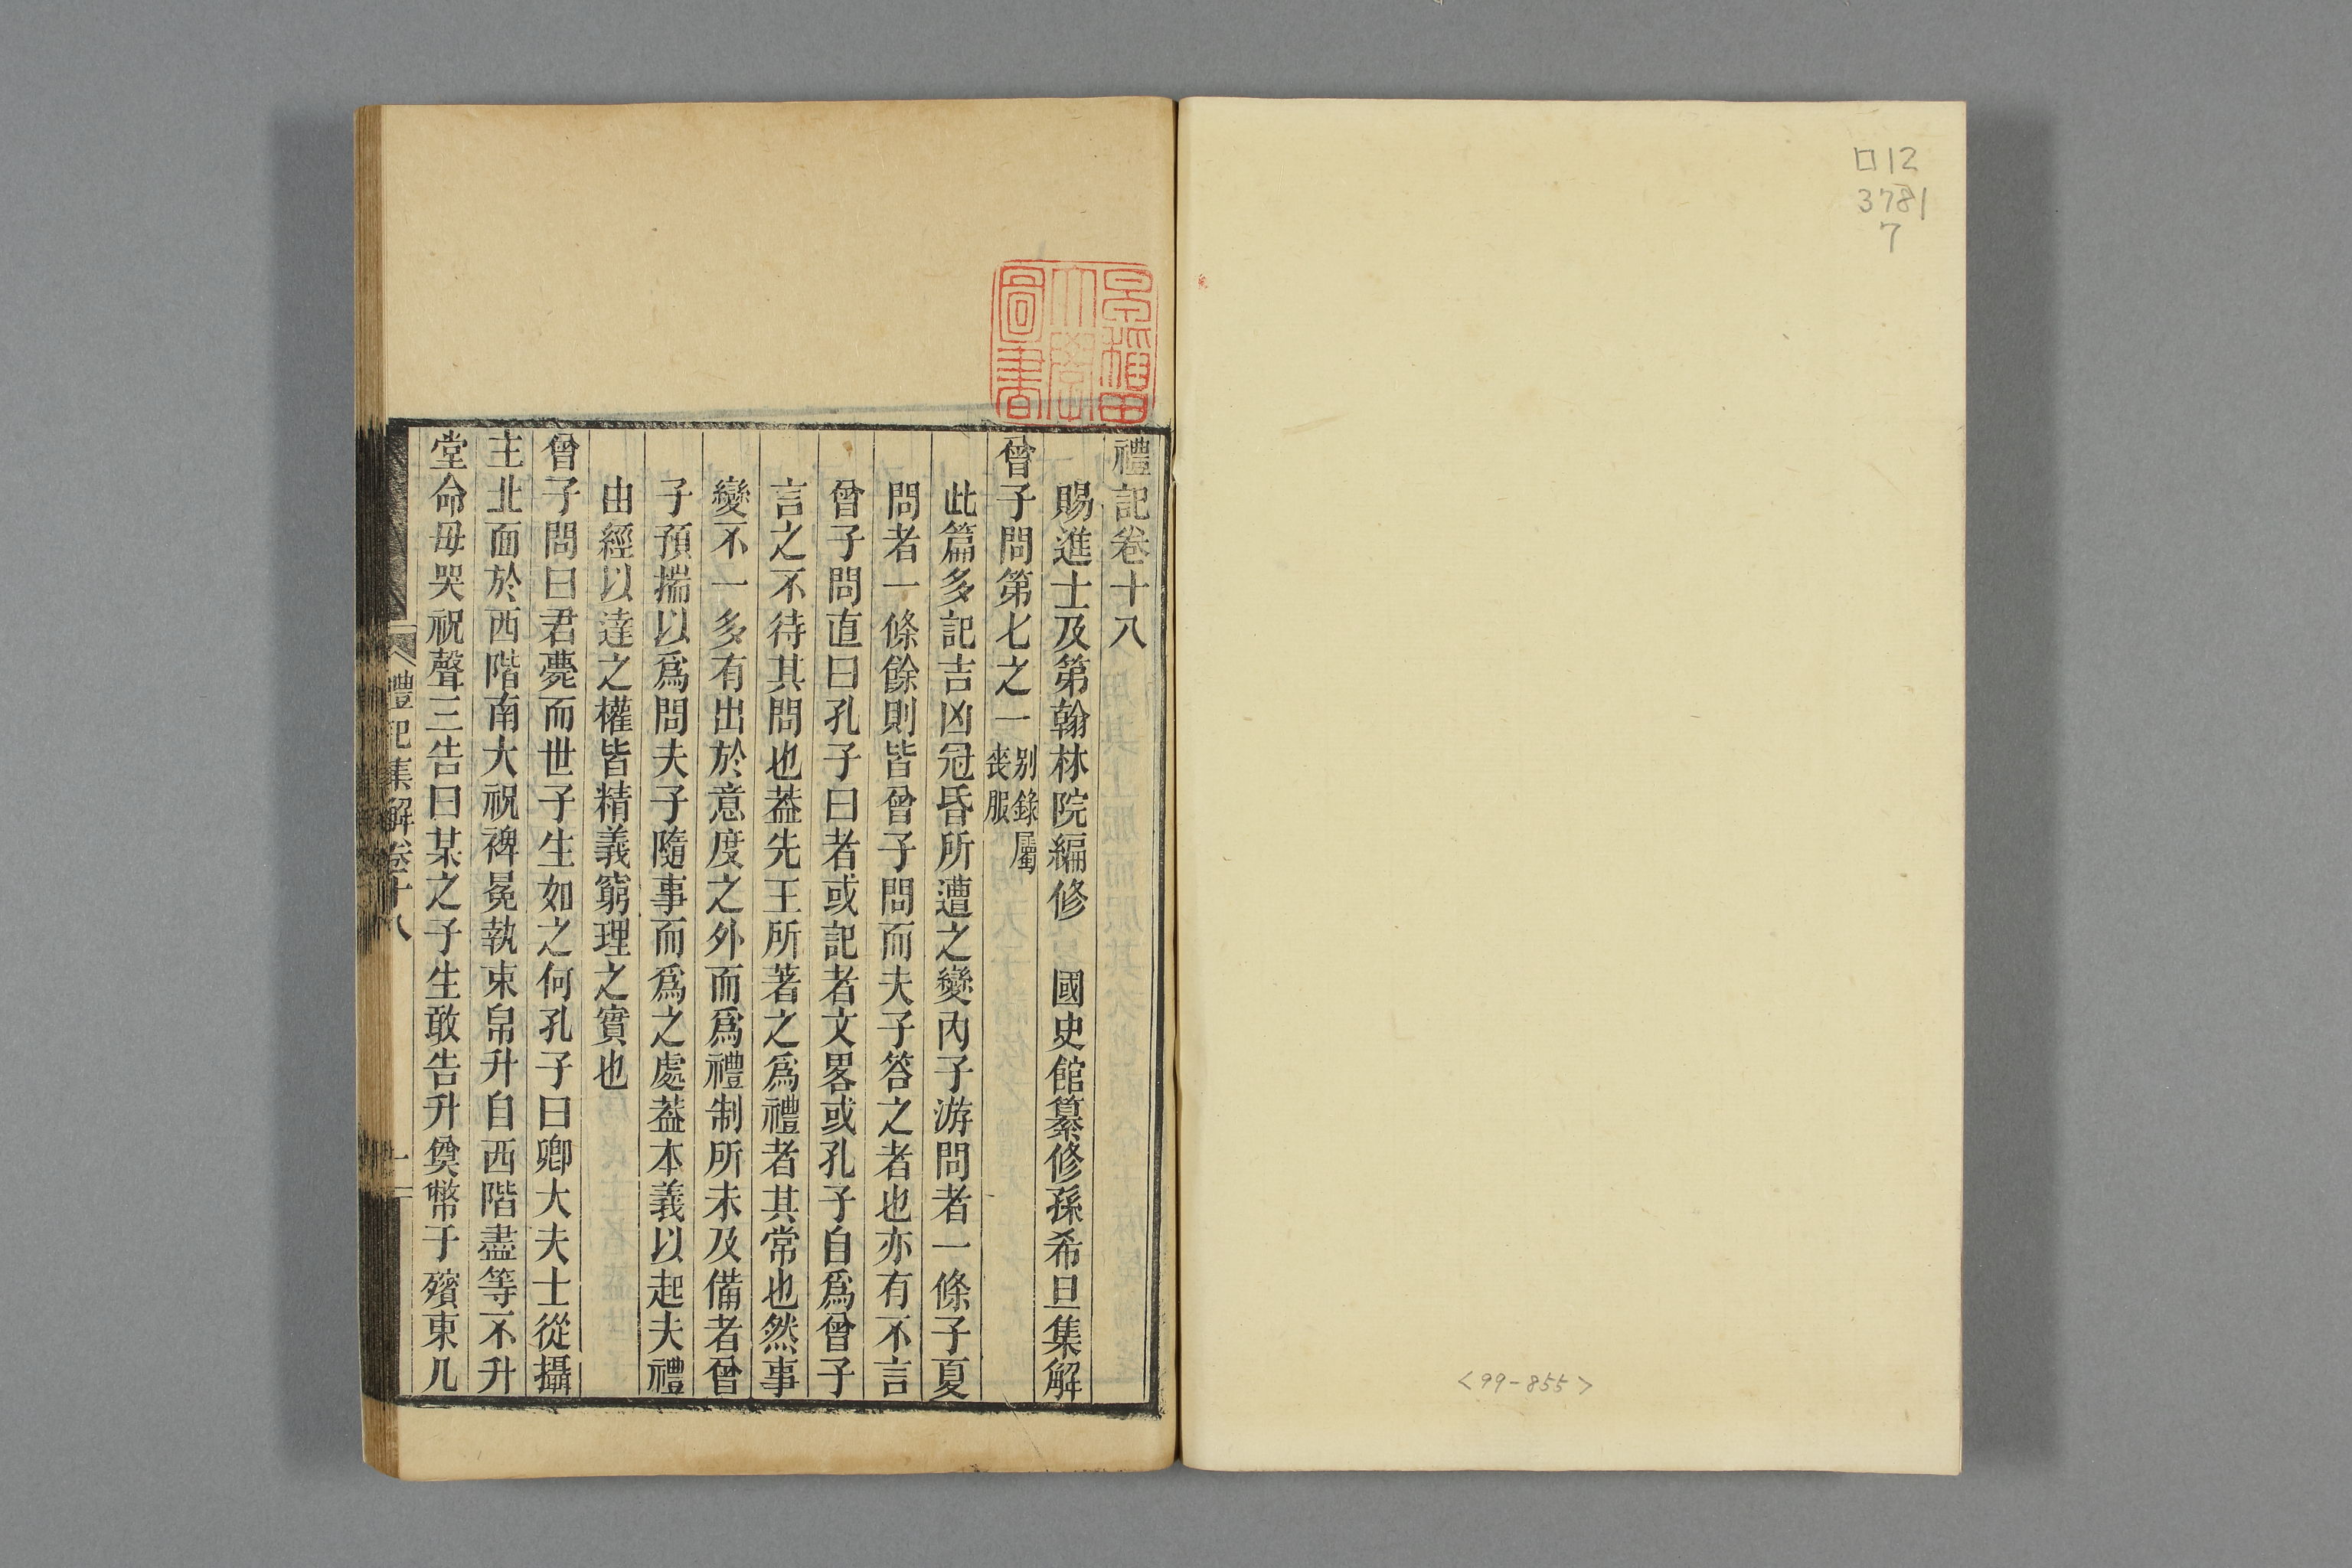 口12
3781
7
<99-855>
早稲田
大學
圖書
禮記卷十八
賜進士及第翰林院編修 國史館纂修孫希旦集解
曾子問第七之一 别錄屬喪服
此篇多記吉凶冠昏所遭之變内子游問者一條子夏
問者一條餘則皆曾子問而夫子答之者也亦有不言
曾子問直曰孔子曰者或記者文畧或孔子自爲曾子
言之不待其問也葢先王所著之爲禮者其常也然事
變不一多有出於意度之外而爲禮制所未及備者曾
子預揣以爲問夫子隨事而爲之處葢本義以起夫禮
由經以達之權皆精義窮理之實也
曾子問曰君薨而世子生如之何孔子曰卿大夫士從攝
主北面於西階南大祝裨冕執束帛升自西階盡等不升
堂命毋哭祝聲三告曰某之子生敢告升奠幣于殯東几
禮記集解卷十八
一